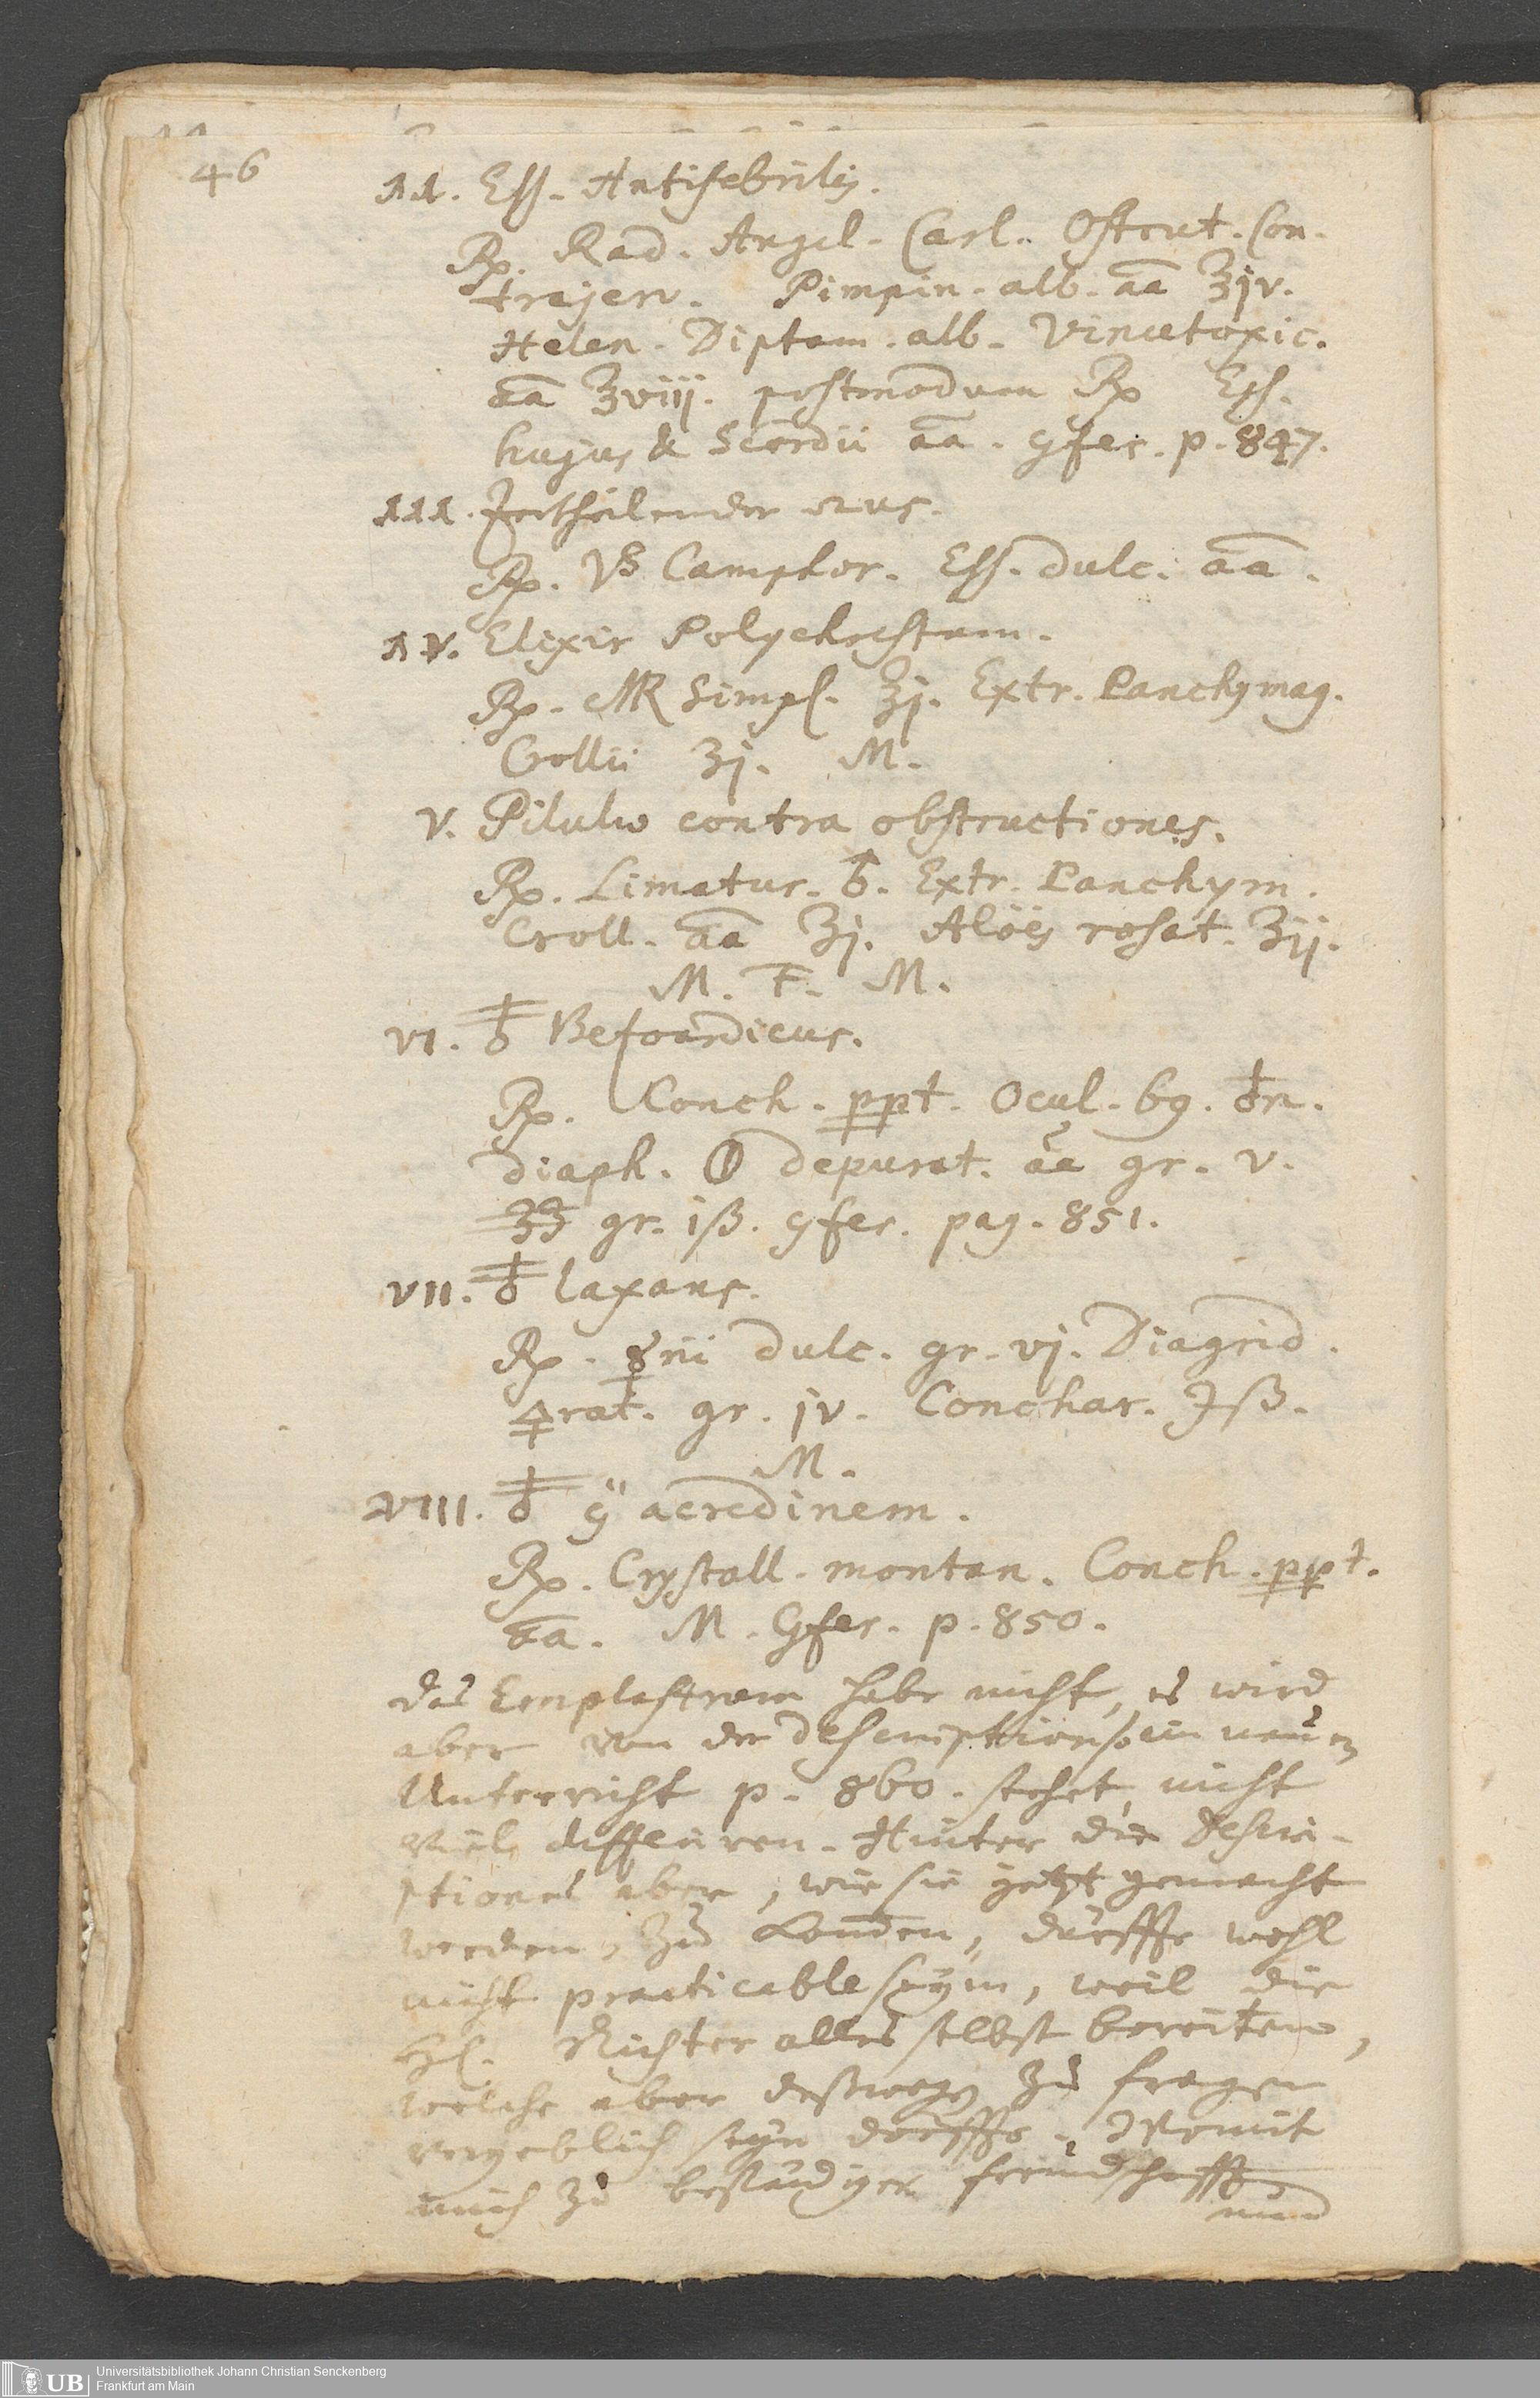 46
II. Ess. Antifebrilis.
Rp. Rad. Angel. Carl. Ostrut. Con-
trajerv. Pimpin. alb. aa ʒjv.
Helen. Diptam. alb. Vincetoxic.
aa ʒviij. postmodum Rp Ess.
hujus & Scordii aa. cfer. p. 847.
III. Zertheilender
Rp. Camphor. Ess. dulc. aa.
IV. Elixir Polychrestum.
Rp. Simpl. ℥j. Extr. Panchymag.
Crollii ʒj. M.
V. Pilulæ contra obstructiones.
Rp. Limatur. Extr. Panchym.
Croll. aa ʒj. Aloës rosat. ʒij.
M. F. M.
VI. Besoardicus.
Rp. Conch. ppt. Ocul. 69. ♁n.
diaph. depurat. aa gr. v.
gr. iß. cfer. pag. 851.
VII. laxans.
Rp. ☿rii dulc. gr. vj. Diagrid.
🜍rat. gr. jv. Conchar. ℈ß.
M.
VIII. acredinem.
Rp. Crystall. montan. Conch. ppt.
aa. M. Cfer. p. 850.
das Emplastrum habe nicht, es wird
aber von der description so im neuen
Unterricht p. 860. stehet, nicht
viel differiren. Hinter die Descri-
ptiones aber, wie sie jetzt gemacht
werden, zu kommen, dürffte wohl
nicht practicable seyn, weil die
HE. Richter alles selbst bereiten,
welche aber deßwegen zu fragen
vergeblich seyn dörffte. Womit
mich zu beständiger freundschafft
und
UB
Universitätsbibliothek Johann Christian Senckenberg
Frankfurt am Main